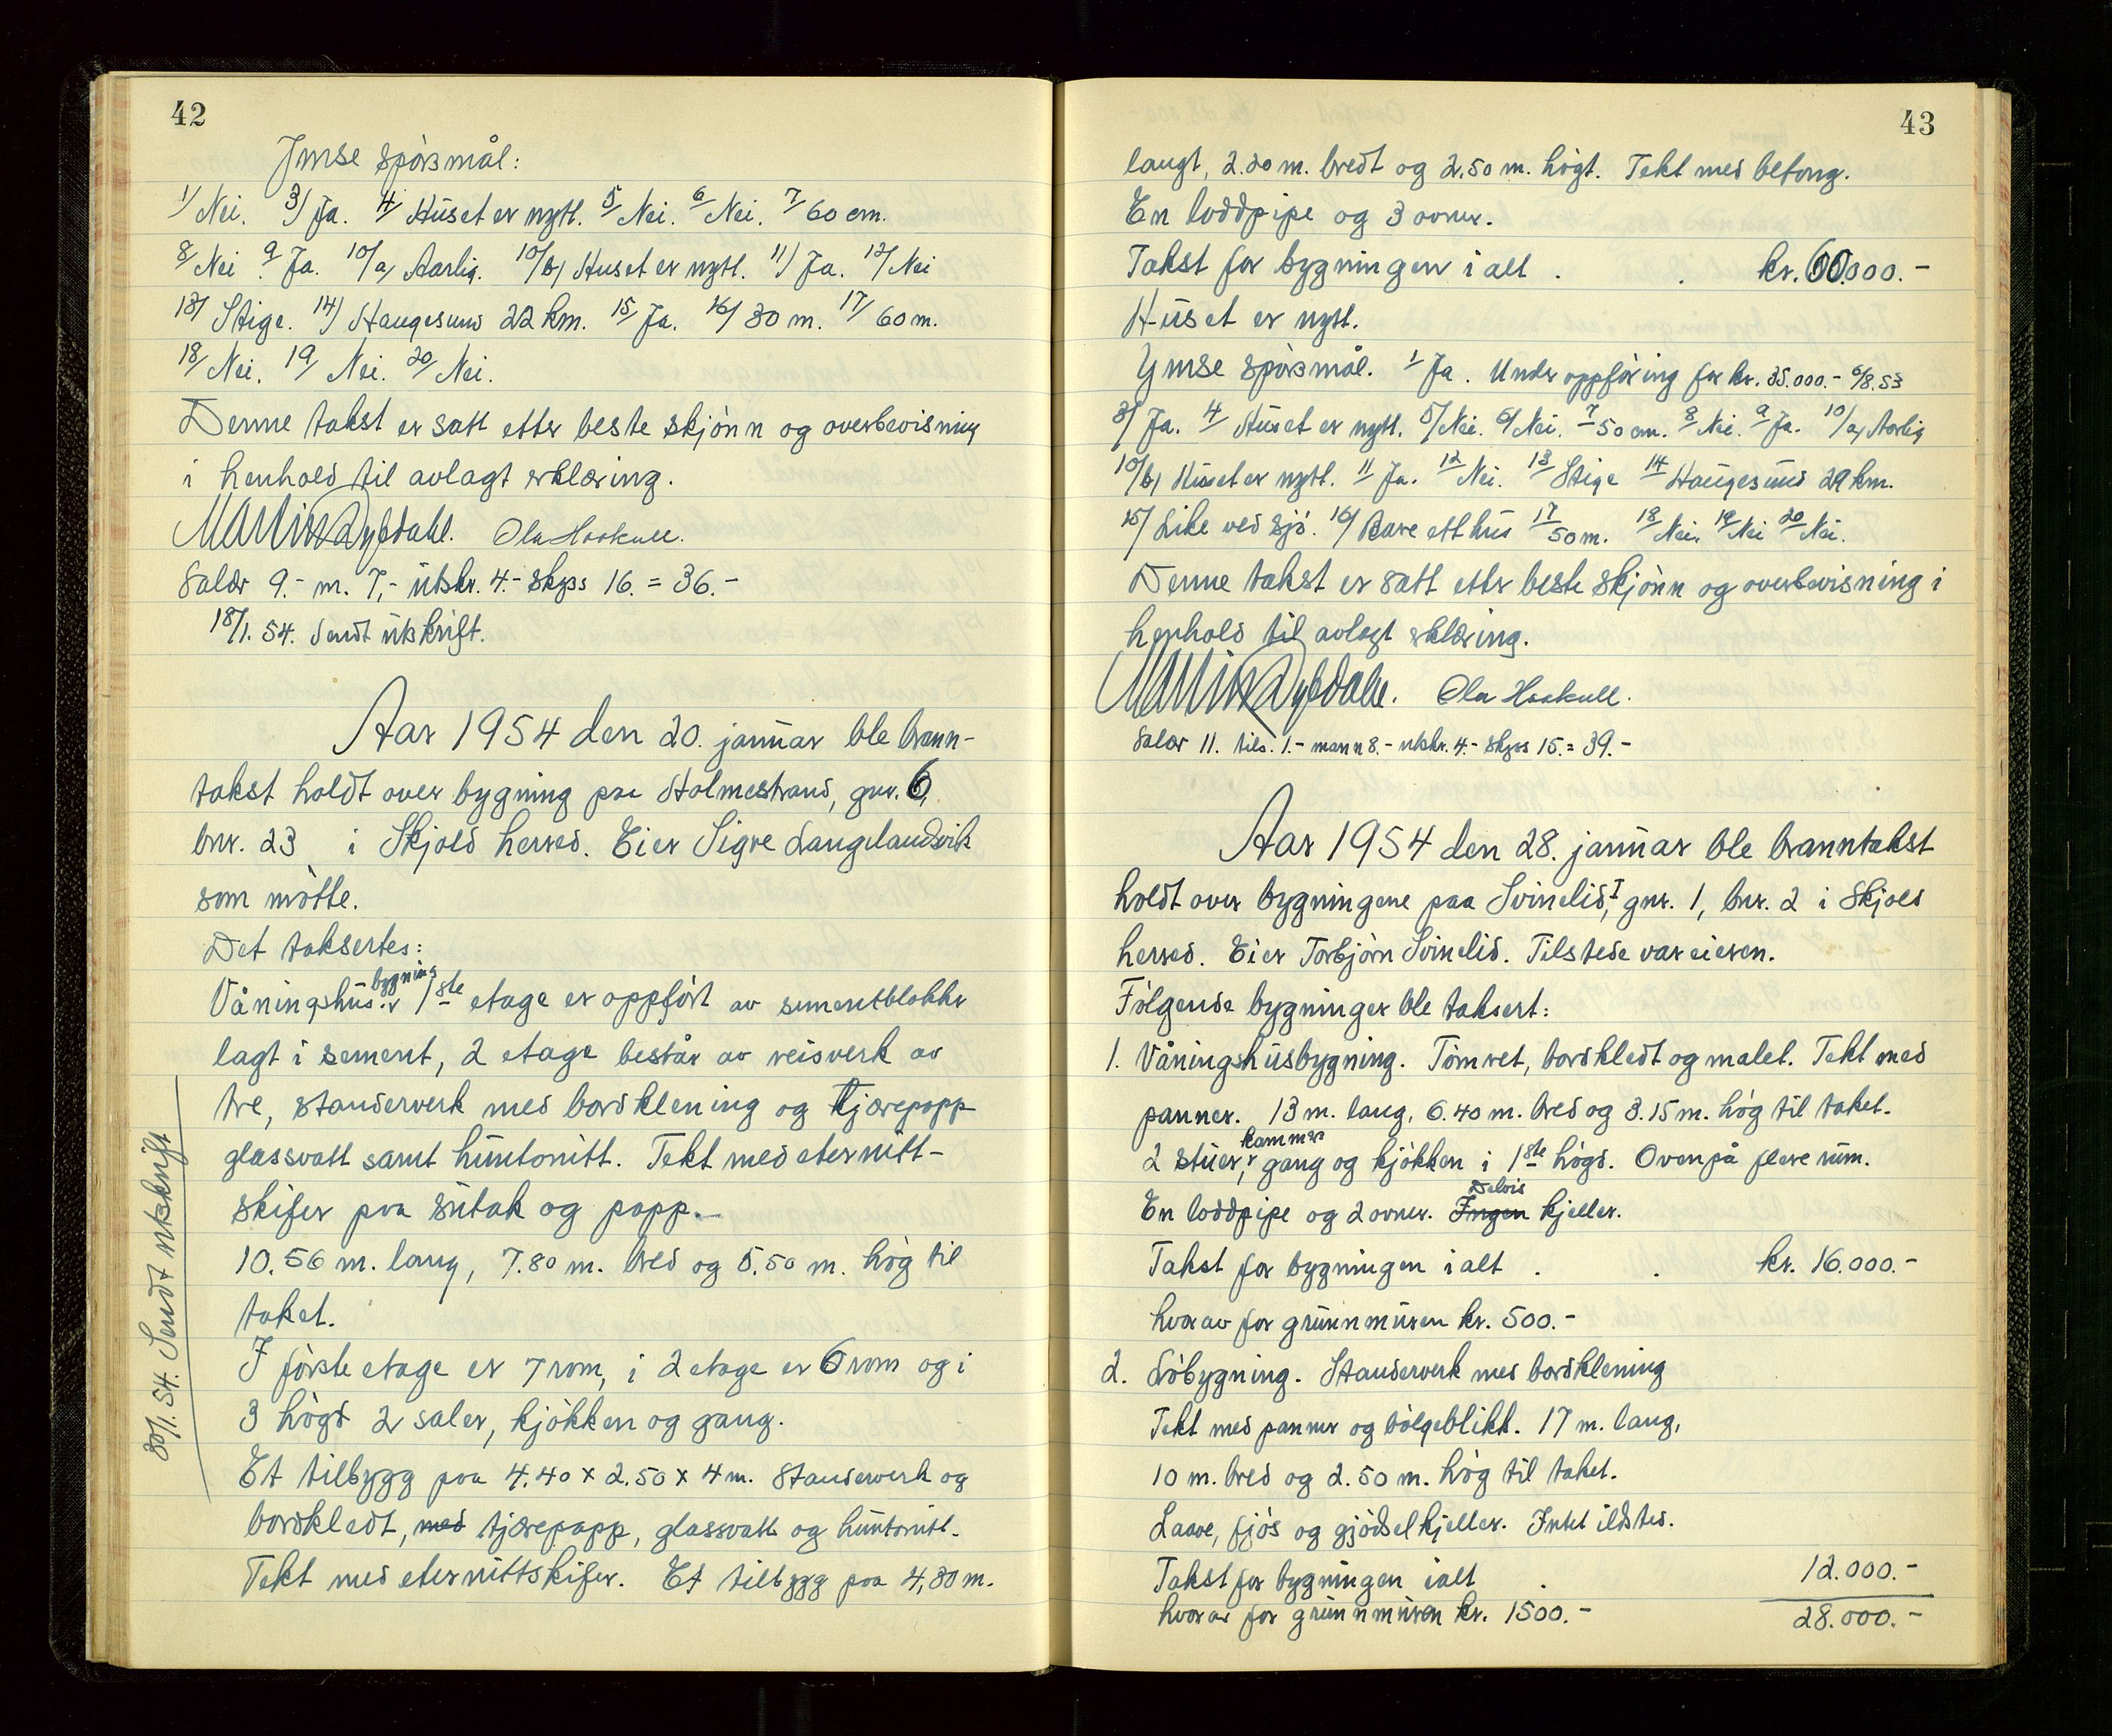 42
Ymse spörsmål:
1/ Nei. 3/ Ja. 4/ Huset er nytt. 5/ Nei. 6/ Nei. 7/ 60 cm.
8/ Nei. 9/ Ja. 10/a, Aarlig. 10/b, Huset er nytt. 11/ Ja. 12/ Nei
13/ Stige. 14/ Haugesund 22 km. 15/ Ja. 16/ 30 m. 17/ 60 m.
18/ Nei. 19/ Nei. 20/ Nei.
Denne takst er satt etter beste skjönn og overbevisning
i henhold til avlagt erklæring.
Martin Dybdahl. Ola Haakull.
Salær 9.- m. 7,- utskr. 4.- skyss 16. = 36.-
18/1. 54. Sendt utskrift.
Aar 1954 den 20. januar ble brann-
takst holdt over bygning paa Holmestrand, gnr. 6,
bnr. 23 i Skjold herred. Eier Sigve Langelandsvik
som mötte.
Det taksertes:
Våningshusbygning 1ste etage er oppfört av sementblokker
lagt i sement, 2 etage består av reisverk av
tre, standerverk med bordklening og tjærepapp
glassvatt samt huntonitt. Tekt med eternitt-
skifer paa sutak og papp.
10.56 m. lang, 7.80 m. bred og 5.50 m. høg til
taket.
I förste etage er 7 rom, i 2 etage er 6 rom og i
3 högd 2 saler, kjökken og gang.
Et tilbygg paa 4.40 x 2.50 x 4 m. Standerverk og
bordkledt, med tjærepapp, glassvatt og huntonitt.
Tekt med eternittskifer. Et tilbygg paa 4,80 m.
30/1. 54. Sendt utskrift
43
langt, 2.20 m. bredt og 2.50 m. högt. Tekt med betong.
En loddpipe og 3 ovner.
Takst for bygningen i alt . . kr. 60.000.-
Huset er nytt.
Ymse spörsmål. 1/ Ja. Under oppföring for kr. 35.000.- 6/8. 53
3/ Ja. 4/ Huset er nytt. 5/ Nei. 6/ Nei. 7/ 50 cm. 8/ Nei. 9/ Ja. 10/a, Aarlig
10/b, Huset er nytt. 11/ Ja. 12/ Nei. 13/ Stige 14/ Haugesund 29 km.
15/ Like ved sjö. 16/ Bare ett hus 17/ 50 m. 18/ Nei. 19/ Nei 20/ Nei.
Denne takst er satt etter beste skjönn og overbevisning i
henhold til avlagt erklæring.
Martin Dybdahl. Ola Haakull.
Salær 11. tils. 1.- mann 8.- utskr. 4.- skyss 15. = 39.-
Aar 1954 den 28. januar ble branntakst
holdt over bygningene paa Svinelid, I gnr. 1, bnr. 2 i Skjold
herred. Eier Torbjörn Svinelid. Tilstede var eieren.
Fölgende bygninger ble taksert:
1. Våningshusbygning. Tömret, bordkledt og malet. Tekt med
panner. 13 m. lang, 6.40 m. bred og 3.15 m. hög til taket.
2 stuer, kammer, gang og kjökken i 1ste högd. Ovenpå flere rum.
En loddpipe og 2 ovner. Ingen Delvis kjeller.
Takst for bygningen i alt . . kr. 16.000.-
hvorav for grunnmuren kr. 500.-
2. Löbygning. Standerverk med bordklening
Tekt med panner og bölgeblikk. 17 m. lang,
10 m. bred og 2.50 m. hög til taket.
Laave, fjös og gjödselkjeller. Intet ildsted.
Takst for bygningen ialt . 12.000.-
hvorav for grunnmuren kr. 1500.- 28.000.-